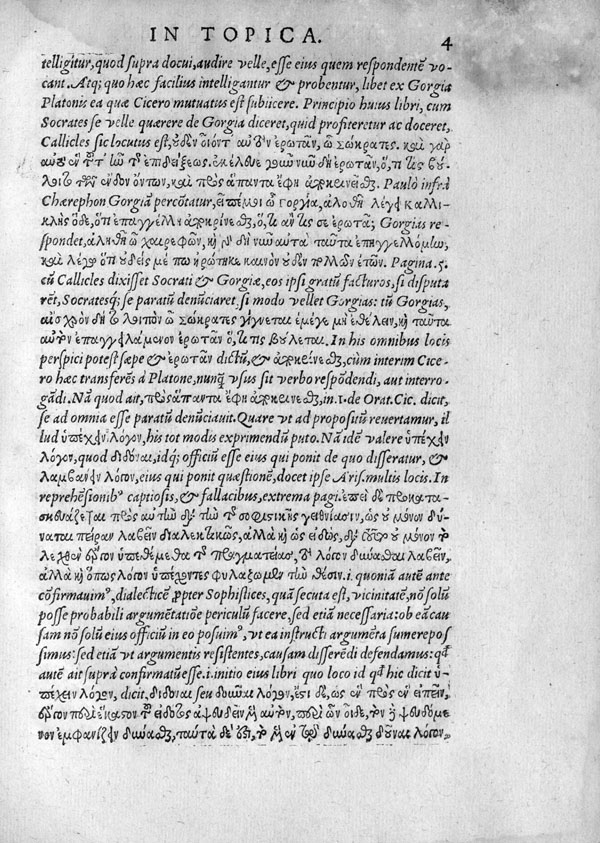 IN TOPICA. 4
telligitur, quod supra docui, audire velle, esse eius quem respondentē vo-
cant. Atq; quo hæc facilius intelligantur & probentur, libet ex Gorgia
Platonis ea quæ Cicero mutuatus est subiicere. Principio huius libri, cum
Socrates se velle quærere de Gorgia diceret, quid profiteretur ac doceret,
Callicles sic locutus est, οὐδὲν οἷον τὸ αὐτὸν ἐρωτᾶν, ὦ σώκρατες. καὶ γὰρ
αὐτῷ ἓν τοῦτ' ἦν τῆς ἐπιδείξεως. ἐκέλευε γοῦν νῦν δὴ ἐρωτᾶν, ὅ, τι τις βού-
λοιτο τῶν ἔνδον ὄντων, καὶ πρὸς ἅπαντα ἔφη ἀποκρινεῖσθαι. Paulò infrà
Chærephon Gorgiā percōtatur, εἰπέ μοι ὦ γοργία, ἀληθῆ λέγει καλλι-
κλῆς ὅδε, ὅτι ἐπαγγέλλῃ ἀποκρίνεσθαι, ὅ, τι ἄν τις σε ἐρωτᾷ; Gorgias re-
spondet, ἀληθῆ ὦ χαιρεφῶν, καὶ γὰρ δὴ νῦν αὐτὰ ταῦτα ἐπηγγελλόμην,
καὶ λέγω ὅτι οὐδείς με πω ἠρώτηκε καινὸν οὐδὲν πολλῶν ἐτῶν. Pagina. 5.
cū Callicles dixisset Socrati & Gorgiæ, eos ipsi gratū facturos, si disputa
rēt, Socratesq; se paratū denūciaret. si modo vellet Gorgias: tū Gorgias,
αἰσχρὸν δὴ τὸ λοιπὸν ὦ σώκρατες γίγνεται ἐμέγε μὴ ἐθέλειν, καὶ ταῦτα
αὐτὸν ἐπαγγειλάμενον ἐρωτᾶν ὅ, τι τις βούλεται. In his omnibus locis
perspici potest sæpe & ἐρωτᾶν dictū, & ἀποκρίνεσθαι, cùm interim Cice-
ro hæc transferēs à Platone, nunq̄ vsus sit verbo respōdendi, aut interro-
gādi. Nā quod ait, πρὸς ἅπαντα ἔφη ἀποκρινεῖσθαι, in. 1. de Orat. Cic. dicit,
se ad omnia esse paratū denūciauit. Quare vt ad propositū reuertamur, il
lud ὑπέχειν λόγον, his tot modis exprimendū puto. Nā idē valere ὑπέχειν
λόγον, quod διδόναι, idq; officiū esse eius qui ponit de quo disseratur, &
λαμβάνειν λόγον, eius qui ponit quæstionē, docet ipse Aris. multis locis. In
reprehēsionib⁹ captiosis, & fallacibus, extrema pagi. ἐπεὶ δὲ προκατα-
σκευάζεται πρὸς αὐτὴν διὰ τὴν τῆς σοφιστικῆς γειτνίασιν, ὡς οὐ μόνον δύ-
ναται πεῖραν λαβεῖν διαλεκτικῶς, ἀλλὰ καὶ ὡς εἰδώς, διὸ οὐ μόνον τὸ
λεχθὲν ἔργον ὑπεθέμεθα τῆς πραγματείας, τὸ λόγον δύνασθαι λαβεῖν,
ἀλλὰ καὶ ὅπως λόγον ὑπέχοντες φυλάξωμεν τὴν θέσιν. i. quoniā autē ante
cōfirmauim⁹, dialecticē ꝓpter Sophistices, quā secuta est, vicinitatē, nō solū
posse probabili argumētatiōe periculū facere, sed etiā necessaria: ob eā cau
sam nō solū eius officiū in eo posuim⁹, vt ea instructi argumēta sumere pos
simus: sed etiā vt argumentis resistentes, causam disserēdi defendamus: qđ
autē ait suprà confirmatū esse. i. initio eius libri quo loco id qđ hic dicit ὑ-
πέχειν λόγον, dicit, διδόναι seu δοῦναι λόγον, ἔστι δὲ, ὡς ἓν πρὸς ἓν εἰπεῖν,
ἔργον περὶ ἕκαστον τοῦ εἰδότος ἀψευδεῖν μὲν αὐτὸν, περὶ ὧν οἶδε, τὸν δὲ ψευδόμε-
νον ἐμφανίζειν δύνασθαι, ταῦτα δὲ ἐστὶ, τὸ μὲν ἐν τῷ δύνασθαι δοῦναι λόγον,